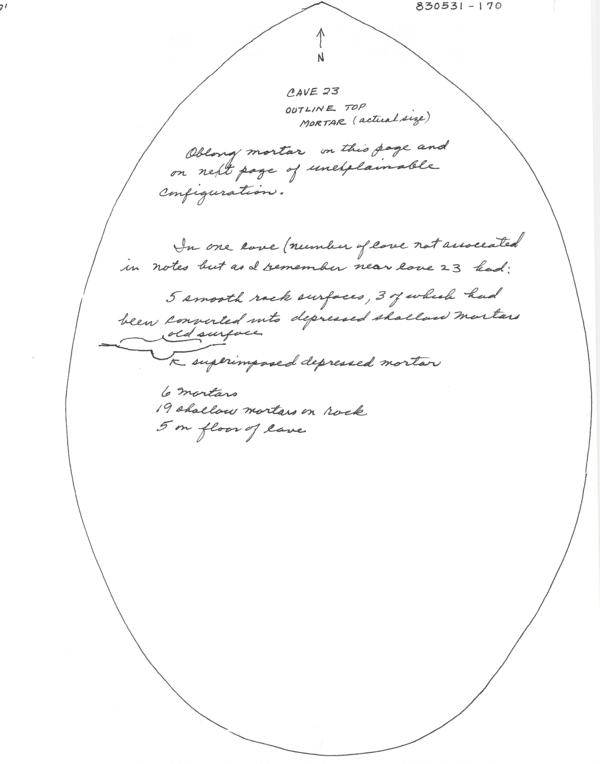 830531-170
N
CAVE 23
OUTLINE TOP
MORTAR (actual size)
Oblong mortar on this page and
on next page of unexplainable
configuration.
In one cave (number of cave not associated
in notes but as I remember near cave 23 had:
5 smooth rock surfaces, 3 of which had
been converted into depressed shallow mortars
old surface
superimposed depressed mortar
6 mortars
19 shallow mortars on rock
5 on floor of cave